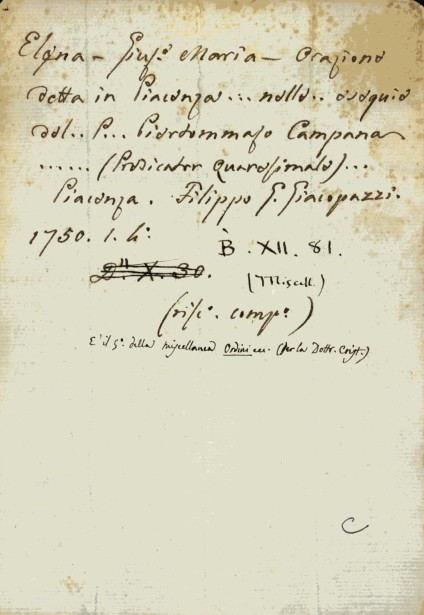 Elena - Gius.e Maria - Orazione
detta in Piacenza ... nelle .. esequie
del .. P... Piertommaso Campana
...... (Predicator quaresimale) ...
Piacenza. Filippo G. Giacopazzi.
1750. 1. li.
B. XII. 81.
D. X. 30. (Miscell.)
(
comp.e)
E' il 5.o della miscellanea Ordini ecc. (Per la Dottr. Crist.)
C